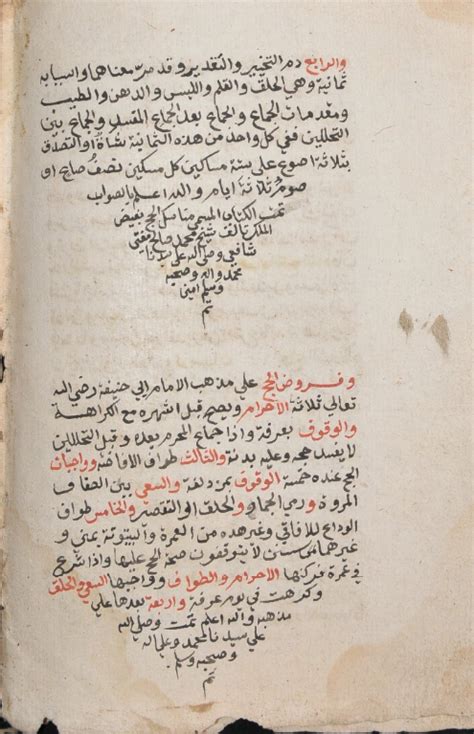 والرابع دم التخيير والتقدير وقد مر معناهما واسبابه
ثمانية وهي الحلق والقلم واللبس والدهن والطيب
ومقدمات الجماع والجماع بعد الجماع المفسد والجماع بين
التحللين ففي كل واحد من هذه الثمانية شاة او التصدق
بثلاثة اصوع على ستة مساكين كل مسكين نصف صاع او
صوم ثلاثة ايام والله اعلم بالصواب
تمت الكتاب المسمى مناسك الحج بفيض
الملك تالف شيخ محمد صالح مفتي
شافعي وصلى الله على سيدنا
محمد واله وصحبه
وسلم امين
تم
وفروض الحج علي مذهب الامام ابي حنيفة رضي الله
تعالي ثلاثة الاحرام ويصح قبل اشهره مع الكراهة
والوقوف بعرفة واذا جماع المحرم بعده وقبل التحللين
لا يفسد حجه وعليه بدنة والثالث طواف الافاضة وواجبات
الحج عنده خمسة الوقوف بمزدلفة والسعي بين الصفا و
المروة ورمي الجمار والحلق او التقصر والخامس طواف
الوداع للافاقي وغير هذه من العمرة والبيتوتة بمنى و
غيرهما سنن لا يتوقفون صحة الحج عليها واذا شرع
في عمرة فركنها الاحرام والطواف وواجبها السعي والحلق
وكرهت في يوم عرفة واربعة بعدها علي
مذهبه والله اعلم تمت وصلى الله
علي سيدنا محمد وعلى اله
وصحبه وسلم
تم